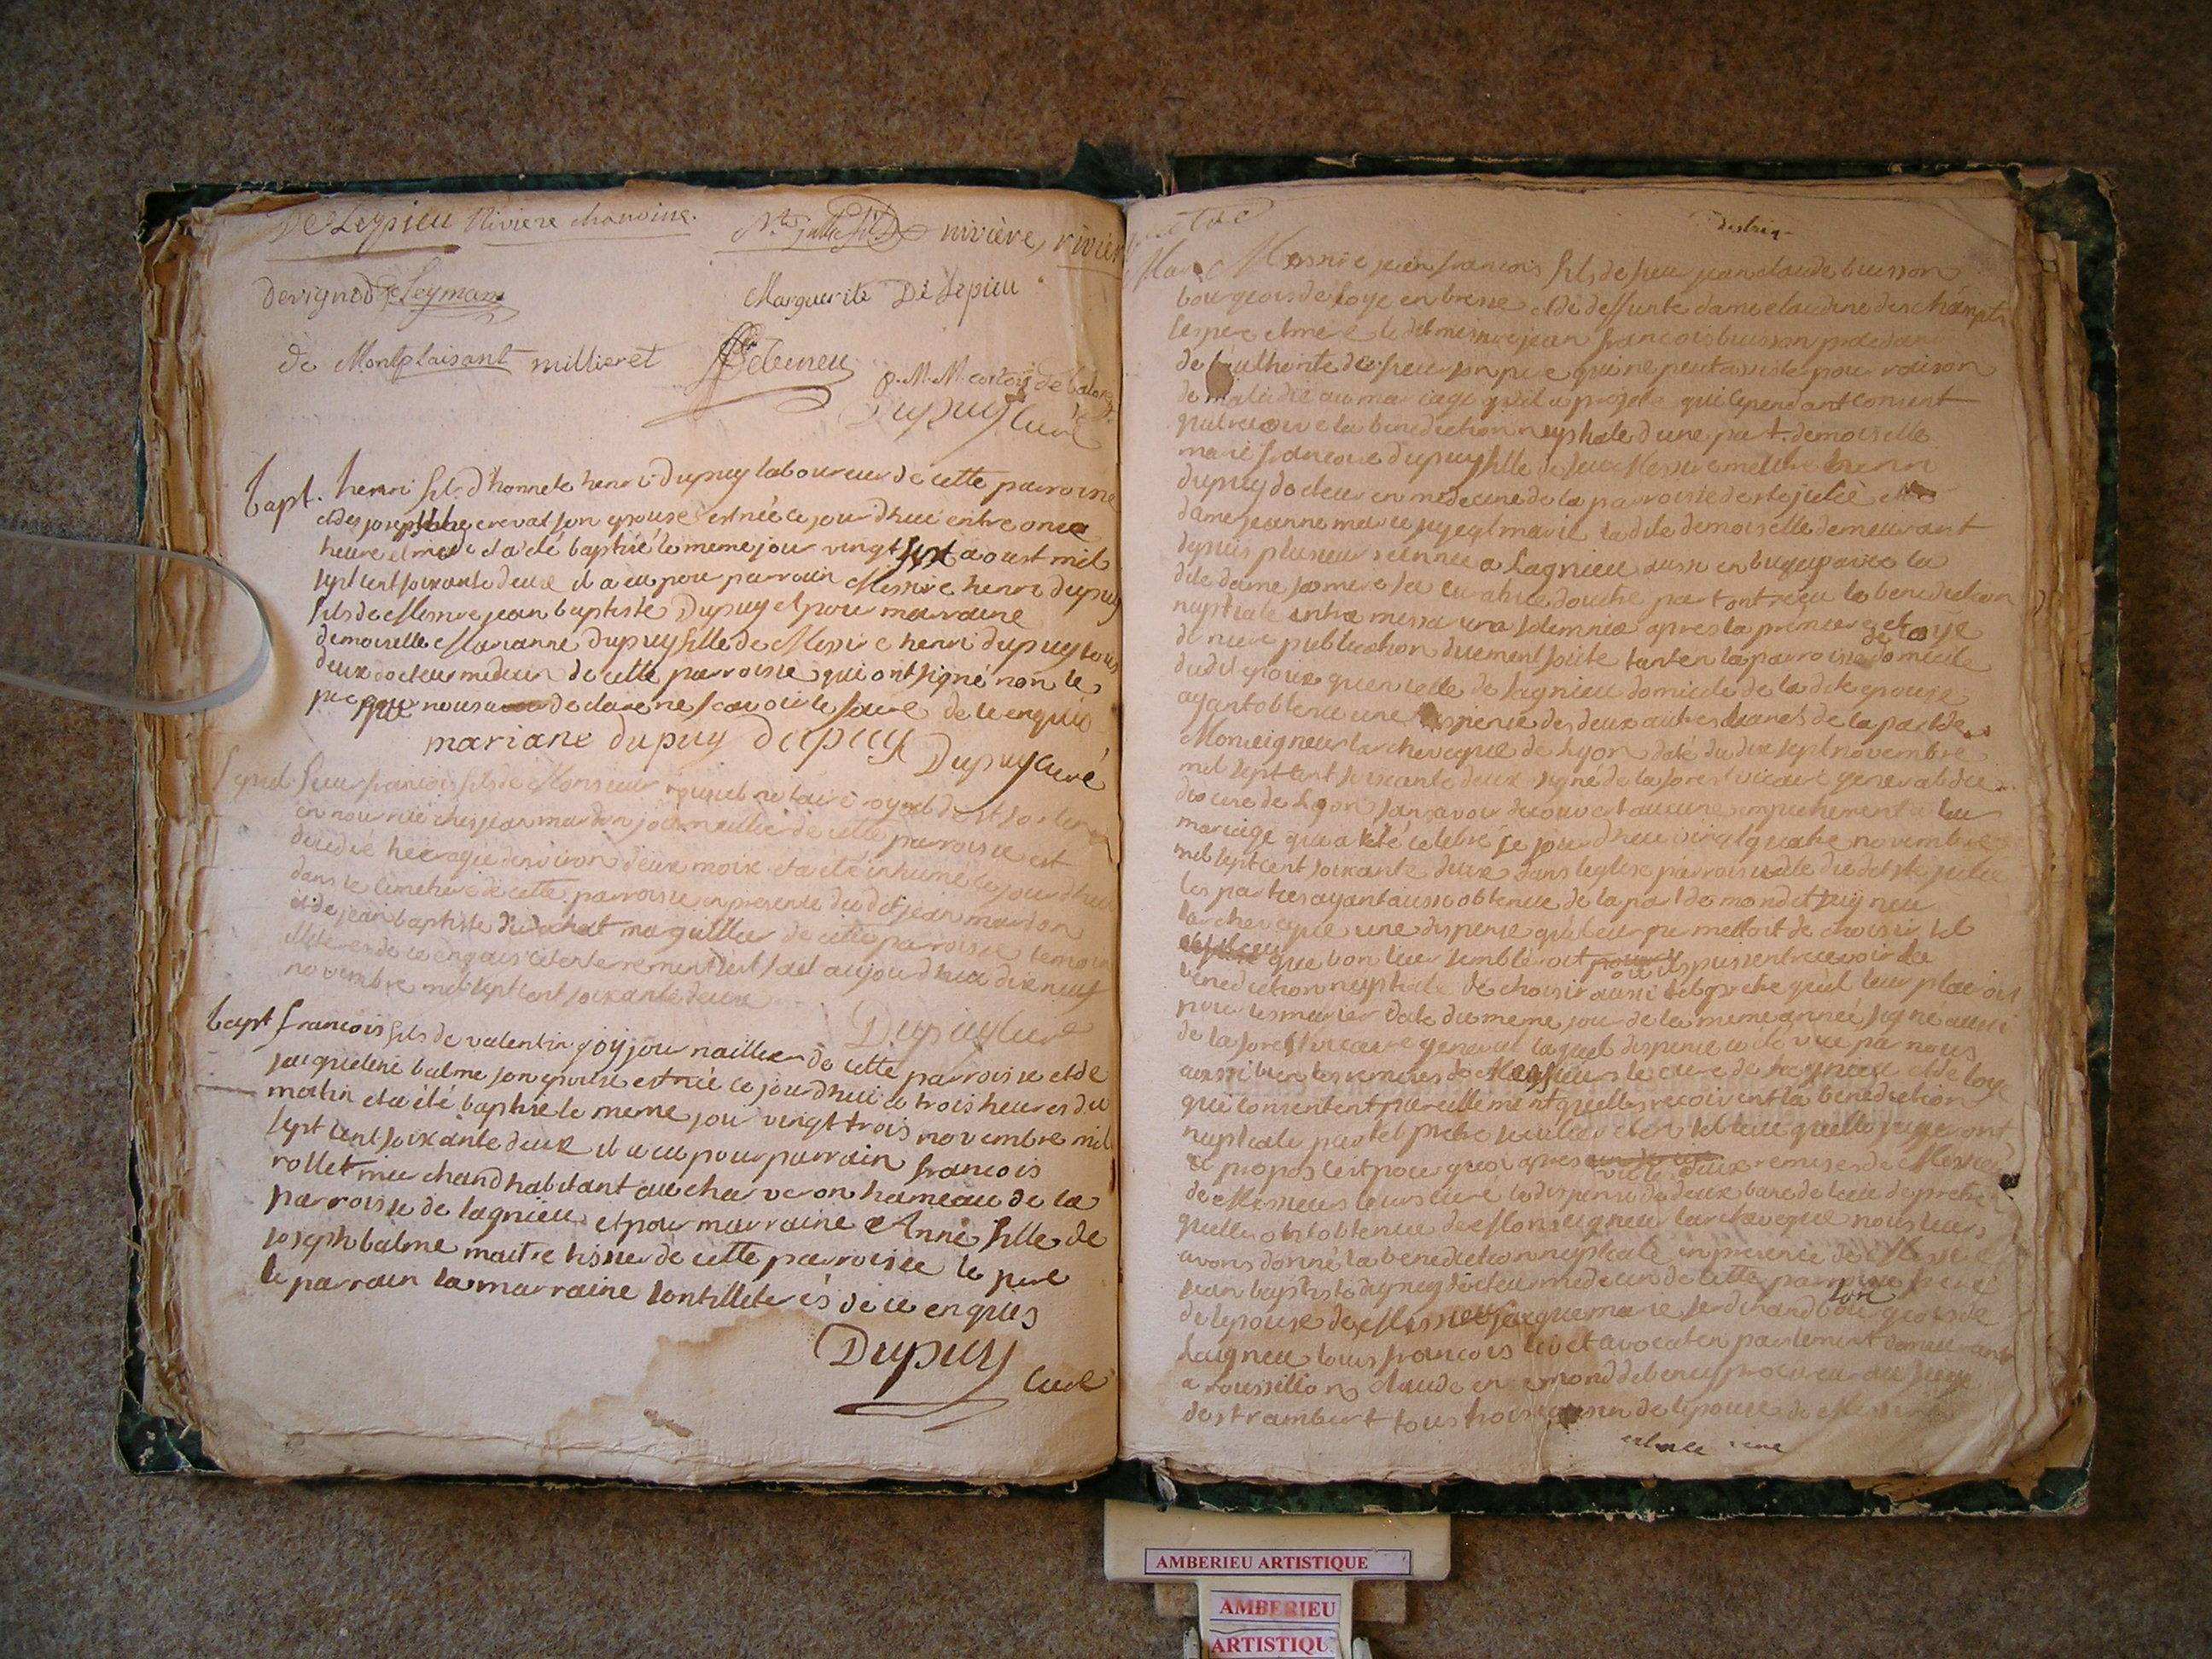 DeLeypieu Riviere chanoine.
nivière, rivier
devignod de Leyman
Marguerite De Lepieu
de Montplaisant millieret Debeneu
Dupuy Curé
bapt. henri fils d'honnete henri Dupuy laboureur de cette parroisse
et de josephte crevat son epouse est née ce jourdhui entre onze
heure et midi et a été baptisé le meme jour vingt sept aoust mil
sept cent soixante deux il a eu pour parrain Messire henri dupuy
fils de Messire jean baptiste Dupuy et pour marraine
demoiselle Marianne Dupuy fille de Messire henri dupuy tous
deux docteur medecin de cette parroisse qui ont signé non le
pere pour nous declare ne scavoir le faire de ce enquis
mariane dupuy Dupuy Dupuy curé
Sepul. feu francois fils de Monsieur notaire royal de
en nourrice ches jean mardon journaillier de cette parroisse est
decedé hier agé denviron deux mois et a été inhumé ce jourdhui
dans le cimetiere de cette parroisse en presence dudit jean mardon
et de jean baptiste maguillier de cette parroisse temoin
illiteres de ce enquis cet enterrement s'est fait aujourdhui dix neuf
novembre mil sept cent soixante deux
Dupuy Curé
bapt francois fils de valentin joly journaillier de cette parroisse et de
jacqueline balme son epouse est née ce jourdhui a trois heures du
matin et a été baptisé le meme jour vingt trois novembre mil
sept cent soixante deux il a eu pour parrain francois
rollet marchand habitant au charveron hameau de la
parroisse de lagnieu et pour marraine Anne fille de
joseph balme maitre tissier de cette parroisse le pere
le parrain la marraine sont illiterés de ce enquis
Dupuy
Curé
Mar. Messire jean francois fils de feu jean claude buisson
bourgeois de loye en bresse et de deffunte dame claudine deschamps
ses pere et mere le dit messire jean francois buisson procedant
de l'authorité de sieur son pere qui ne peut assister pour raison
de maladie au mariage qu'il a projeté qui cependant consent
qu'il recoive la benediction nuptiale d'une part. demoiselle
marie francoise dupuy fille de feu Messire henri
dupuy docteur en medecine de la parroisse de ste julie et de
dame jeanne marie la dite demoiselle demeurant
depuis plusieurs années a Lagnieu aussi en bugey avec la
dite dame sa mere sa curatrice d'autre part ont reçu la benediction
nuptiale intra missarum solemnia apres la premiere et
derniere publication duement faite tant en la parroisse de loye domicile
dudit epoux qu'en celle de lagnieu domicile de la dite epouse
ayant obtenu une dispense des deux autres bancs de la part de
Monseigneur l'archeveque de Lyon daté du dix sept novembre
mil sept cent soixante deux signé de la forest vicaire general du
diocese de Lyon sans avoir decouvert aucune empechement a leur
mariage qui a été celebré ce jourdhui vingt quatre novembre
mil sept cent soixante deux dans leglise parroissiale dudit ste julie
les parties ayant aussi obtenue de la part de mondit seigneur
l'archeveque une dispense qui leur permettoit de choisir tel
que bon leur sembleroit ou ils pussent recevoir la
benediction nuptiale de choisir aussi tel pretre qu'il leur plairoit
pour les marier date du meme jour de la meme année signé aussi
de la forest vicaire general laquel dispense a été vue par nous
aussi bien les remises de Messieurs le curé de lagnieu et de loye
qui consentent pareillement qu'elles recoivent la benediction
nuptiale par tel pretre seculier et en tel lieu qu'elles jugeront
a propos c'est pour quoi apres vu les deux remises de Messieurs
de Messieurs leurs curé la dispense de deux bancs de lieu de pretre
qu'elles ont obtenue de Monseigneur l'archeveque nous leurs
avons donné la benediction nuptiale en presence de Messire
jean baptiste dupuy docteur medecin de cette parroisse frere
de l'epouse de Messieurs jacque marie ferdinand bourgeois de
Lagnieu louis francois avocat en parlement demeurant
a roussillon claude debeneu procureur au siege
de st rambert tous trois cousin de lepouse de Messire
AMBERIEU ARTISTIQUE
AMBERIEU
ARTISTIQU